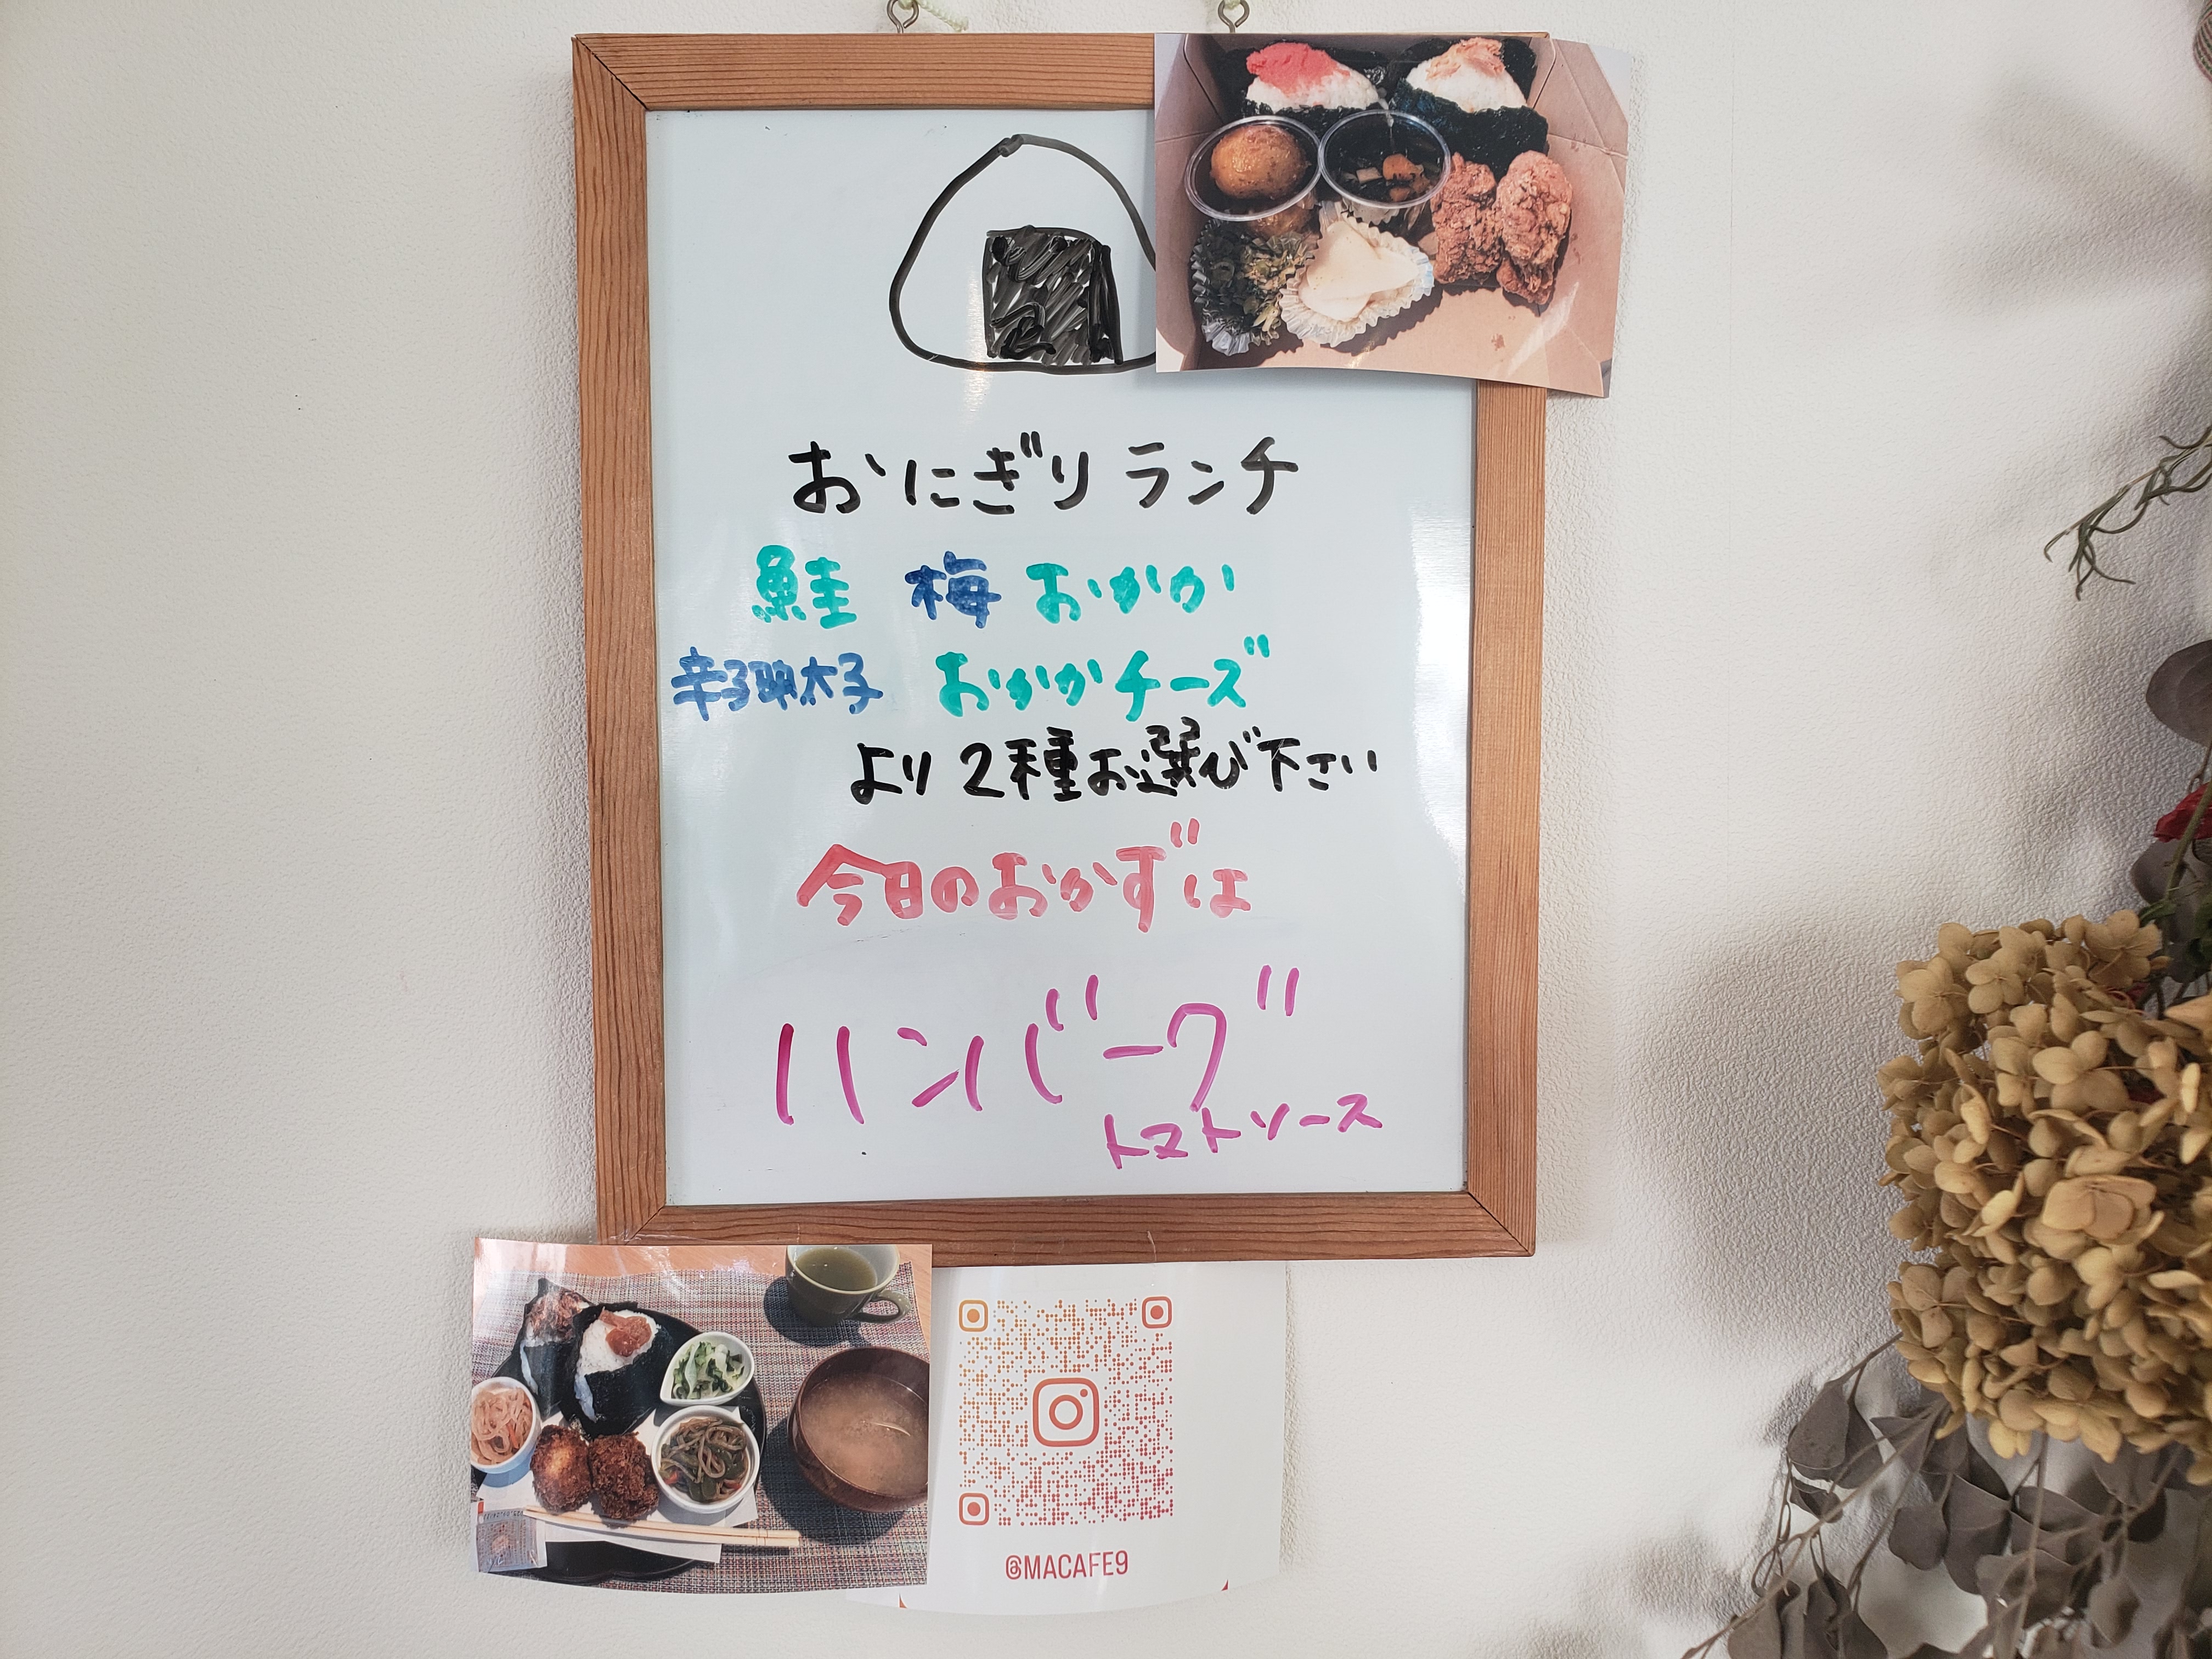 おにぎりランチ
鮭 梅 おかか
辛子明太子 おかかチーズ
より2種お選び下さい
今日のおかずは
ハンバーグ
トマトソース
@MACAFE9